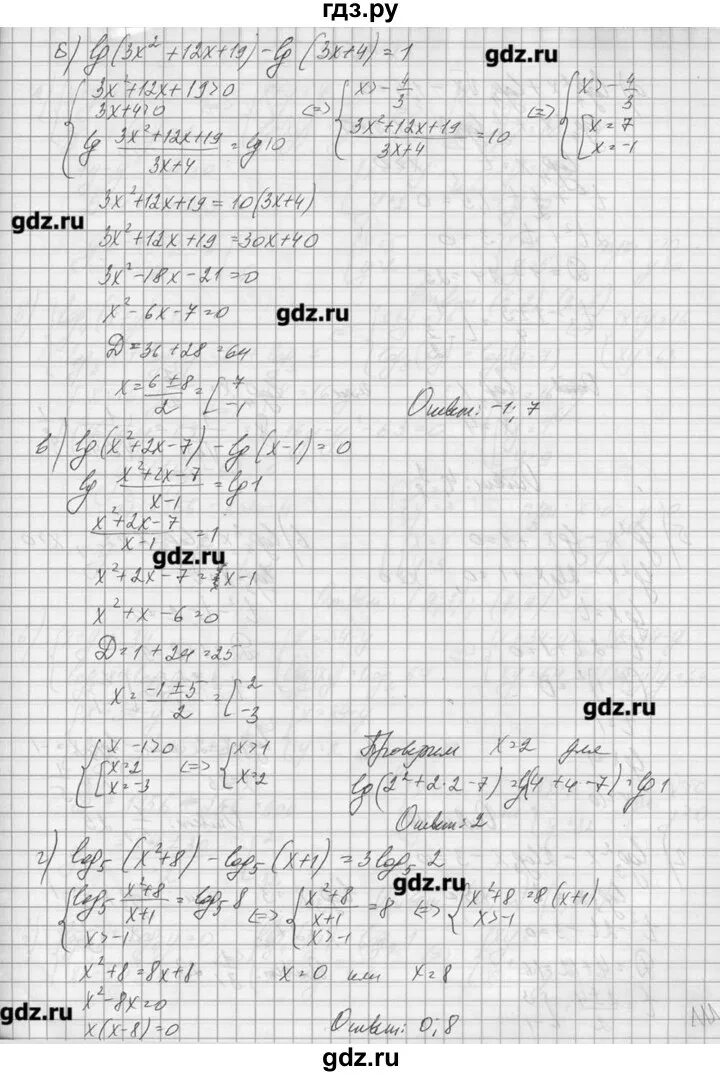 гдз.ру
б) lg(3x²+12x+19)-lg(3x+4)=1
gdz.ru
{3x²+12x+19>0 (=) {x>-4/3 (=) {x>-4/3
3x+4>0
lg (3x²+12x+19)/(3x+4) = lg10 (3x²+12x+19)/(3x+4) = 10 [x=7
x=-1
3x²+12x+19=10(3x+4)
gdz.ru
3x²+12x+19=30x+40
3x²-18x-21=0
x²-6x-7=0
gdz.ru
D=36+28=64
x=(6±8)/2=[7
-1
Ответ: -1; 7
в) lg(x²+2x-7)-lg(x-1)=0
lg (x²+2x-7)/(x-1) = lg1
(x²+2x-7)/(x-1) = 1
gdz.ru
x²+2x-7=x-1
x²+x-6=0
D=1+24=25
x=(-1±5)/2=[2
-3
gdz.ru
{x-1>0 (=) {x>1
[x=2 x=2
x=-3
Проверим x=2 для
lg(2²+2·2-7)=lg(4+4-7)=lg1
Ответ: 2
г) log₅(x²+8)-log₅(x+1)=3log₅2
gdz.ru
{log₅ (x²+8)/(x+1) = log₅8 (=) {(x²+8)/(x+1) = 8 (=) {x²+8=8(x+1)
x>-1 x>-1 x>-1
x²+8=8x+8 x=0 или x=8
x²-8x=0
gdz.ru
x(x-8)=0 Ответ: 0; 8
gdz.ru
gdz.ru